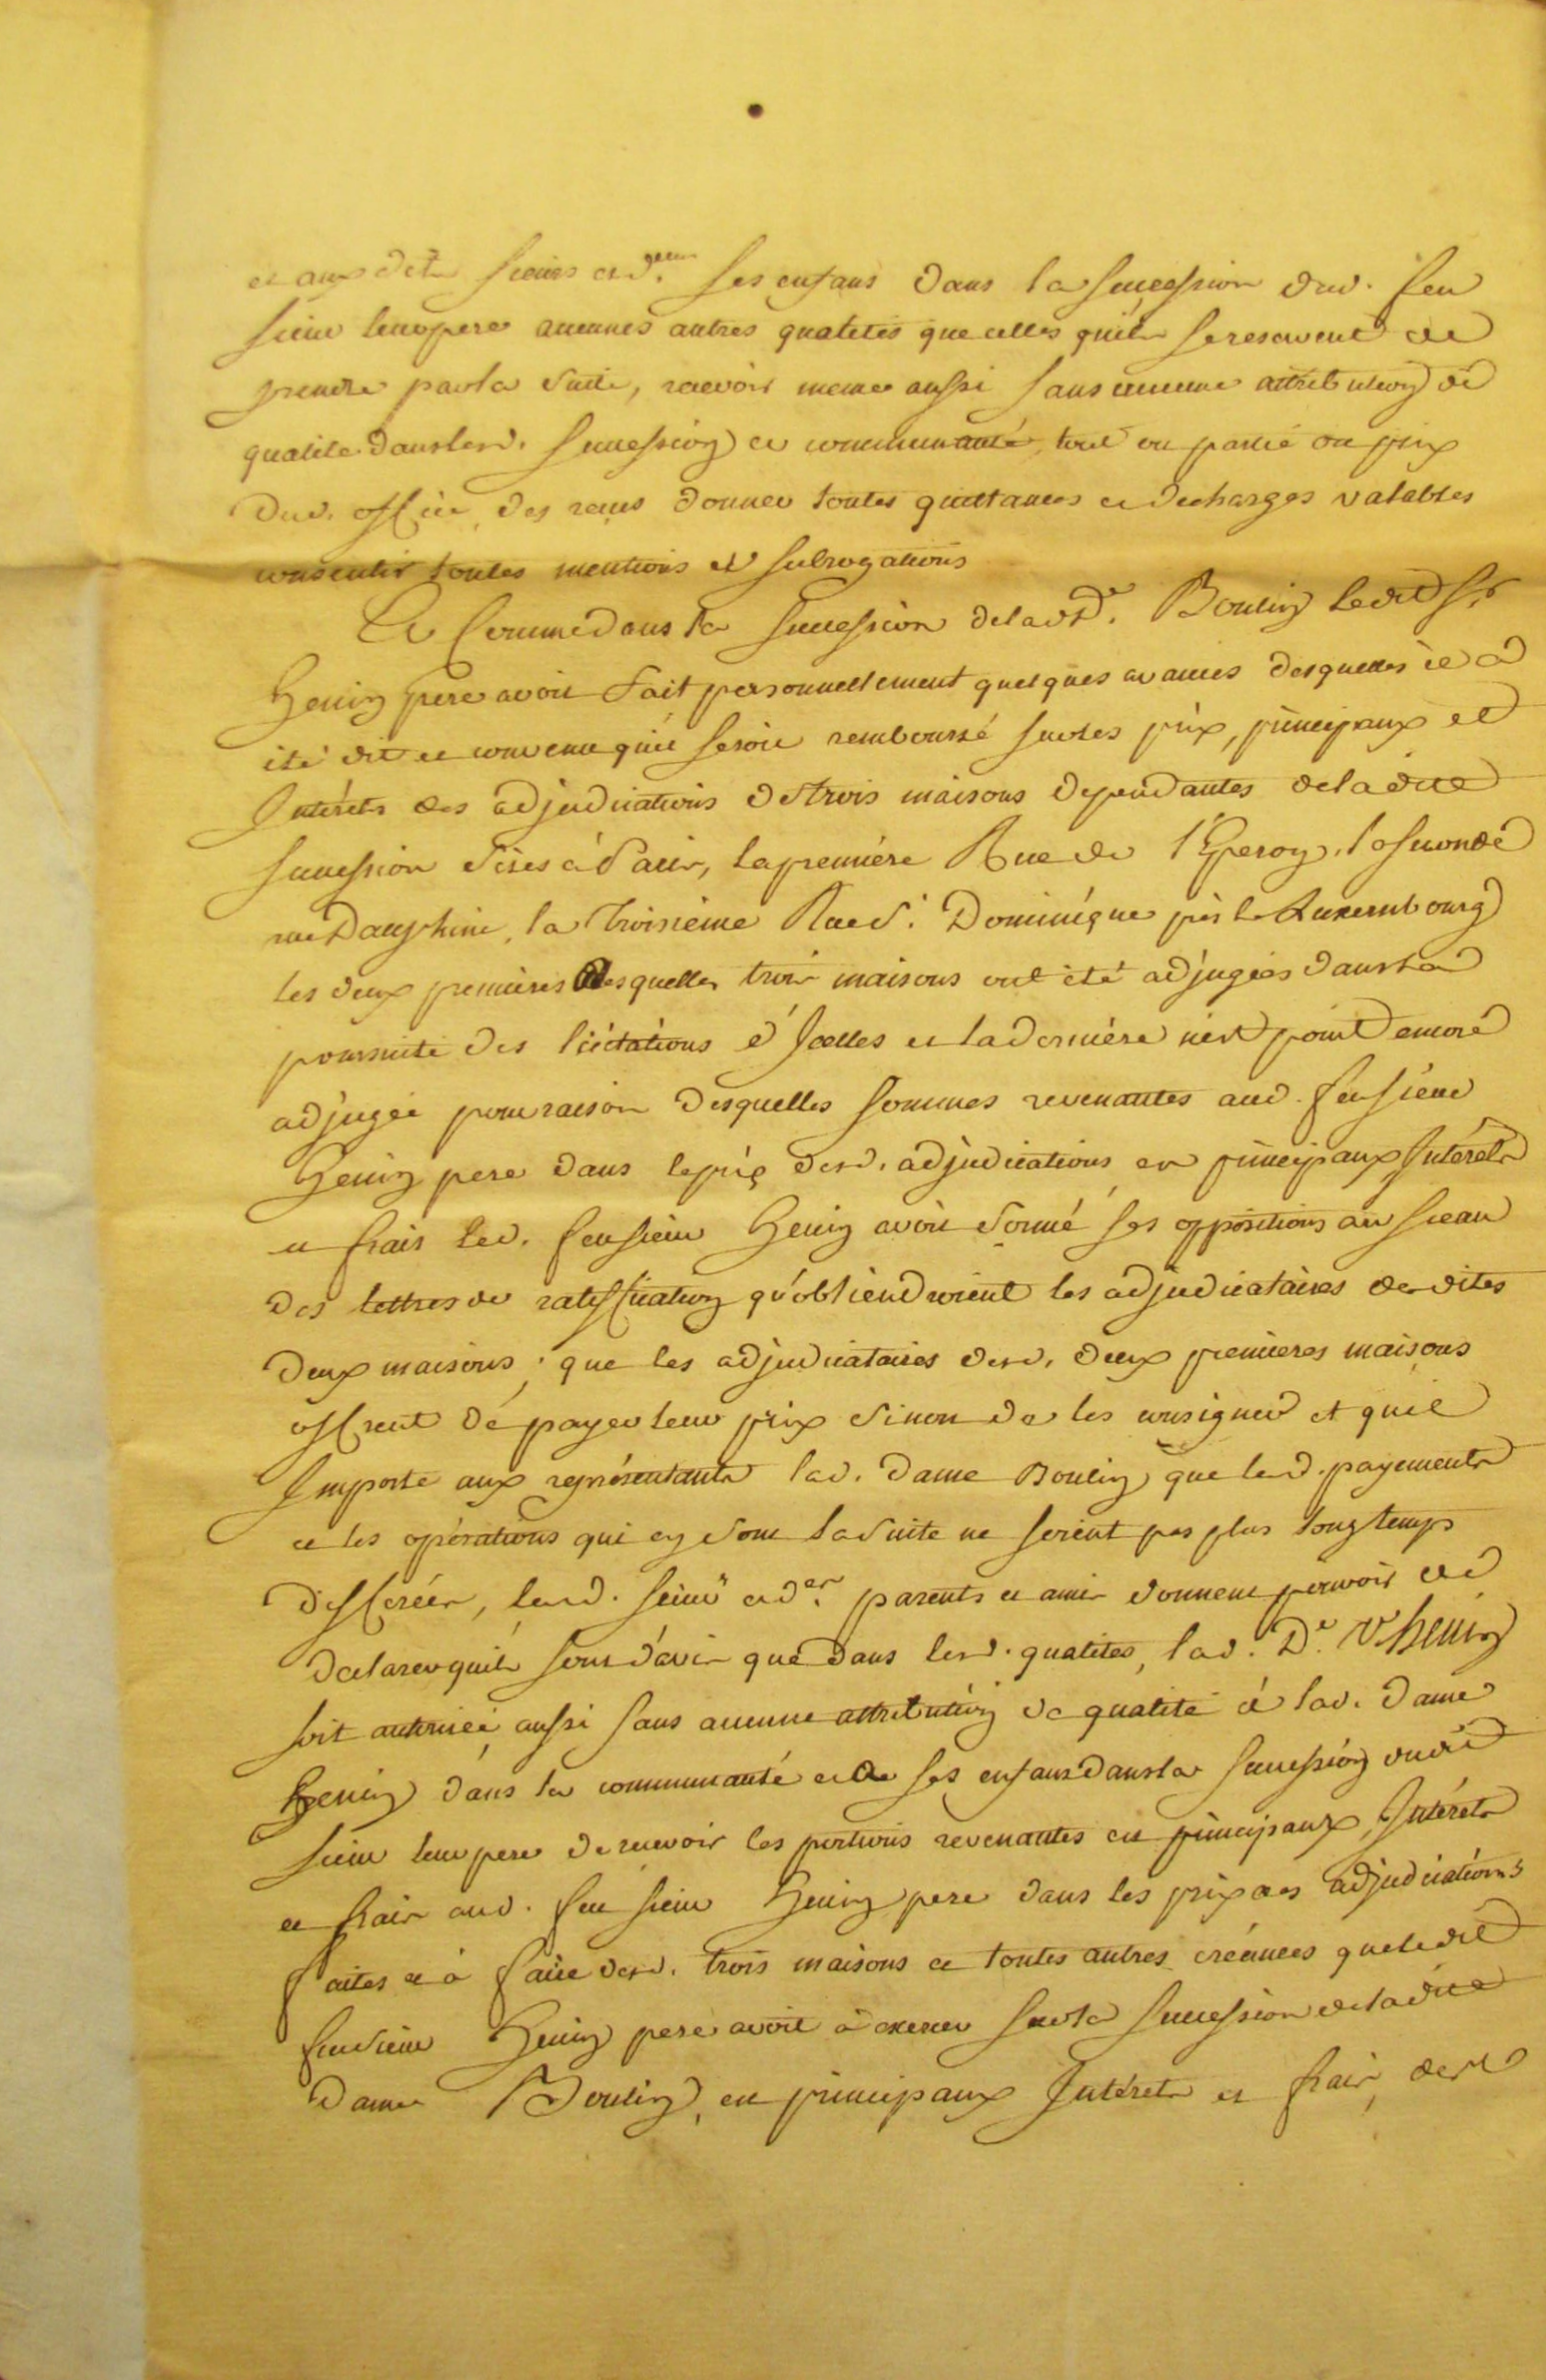 et auxdits sieurs et d.elles ses enfans dans la succession dud. feu
sieur leur pere aucunes autres qualités que celles qu'ils se reservent de
prendre par la suite, recevoir meme aussi sans aucune attribution de
qualité dans lesd. succession et communauté, tout ou partie du prix
dud. office, des reçus donner toutes quittances et decharges valables
consentir toutes mentions et subrogations
Et comme dans la succession de lad. De. Boulin ledit Sr
Henin pere avoit fait personnellement quelques avances desquelles il a
été dit et convenu qu'il seroit remboursé sur les prix, principaux et
Intérêts des adjudications des trois maisons dependantes de ladite
succession sises à Paris, la premiére Rue de l'Eperon, la seconde
rue Dauphine, la troisiéme Rue St. Dominique près le Luxembourg
les deux premières desquelles trois maisons ont été adjugées dans la
poursuite des licitations d'Icelles et la derniére n'est point encore
adjugée pour raison desquelles sommes revenantes aud. feu sieur
Henin pere dans le prix desd. adjudications en principaux Intérêts
et frais led. feu sieur Henin avoit formé ses oppositions au sceau
des lettres de ratiffication qu'obtiendroient les adjudicataires desdites
deux maisons; que les adjudicataires desd. deux premieres maisons
offrent de payer leur prix sinon de les consigner et qu'il
Importe aux représentants lad. Dame Boulin que lesd. payements
et les opérations qui en sont la suite ne soient pas plus longtemps
différées, lesd. sieurs et d.es parents et amis donnent pouvoir de
declarer qu'ils sont d'avis que dans lesd. qualités, lad. De. Ve. henin
soit autorisée aussi sans aucune attribution de qualité à lad. Dame
Henin dans la communauté et à ses enfans dans la succession dudit
sieur leur pere de recevoir les portions revenantes en principaux, Intérêts
et frais aud. feu sieur Henin pere dans les prix des adjudications
faites et à faire desd. trois maisons et toutes autres créances que ledit
feu sieur Henin pere avoit à exercer sur la succession de ladite
Dame Boulin, en principaux Intérets et frais, des